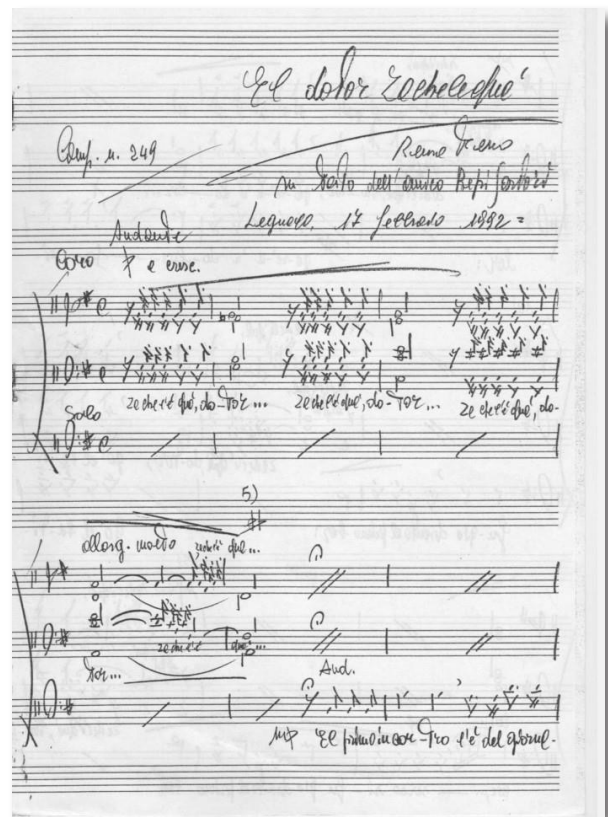 El dolor zechelequé
Comp. n. 249
su testo dell'amico Bepi Sartori
Legnago, 17 febbraio 1992 =
Andante
Coro p e cresc.
ze chel'è qué, do-tor... ze chel'è qué, do-tor... ze chel'è qué, do-
Solo
5)
allarg. molto ze chel'è qué...
ze chel'è qué...
tor...
And.
mp El primo incon-tro l'è del giorno-